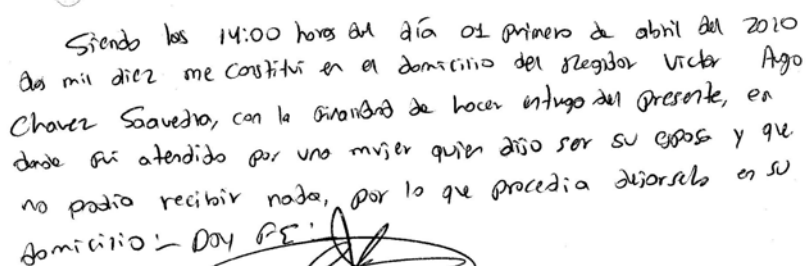 Siendo las 14:00 horas del día 01 primero de abril del 2010
dos mil diez me constituí en el domicilio del Regidor Victor Ago
Chavez Saavedra, con la finalidad de hacer entrega del presente, en
donde fui atendido por una mujer quien dijo ser su esposa y que
no podia recibir nada, por lo que procedia dejarselo en su
domicilio :- DOY FE.